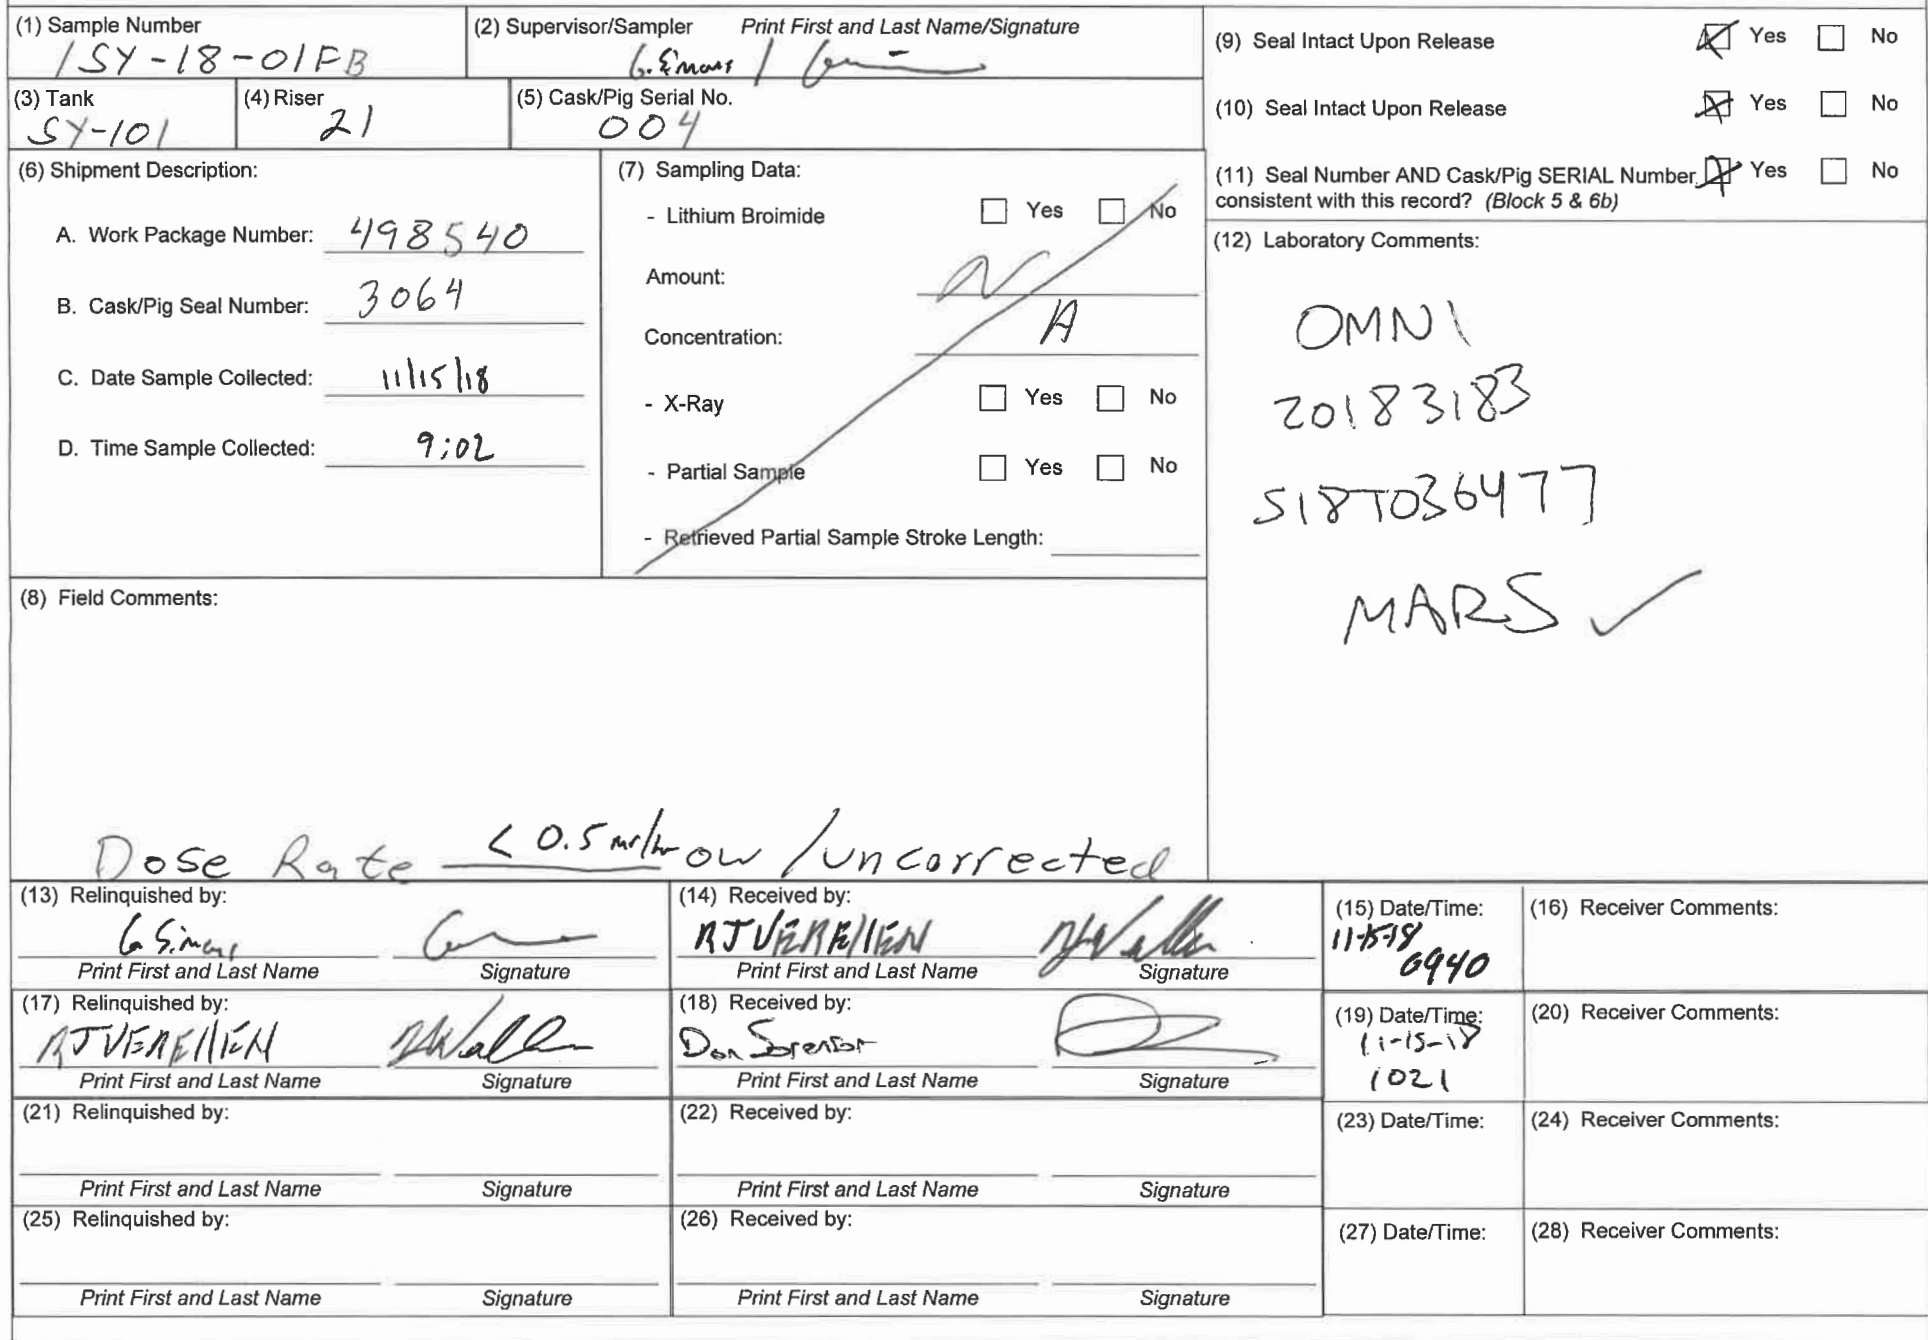 (1) Sample Number
1SY-18-01FB
(2) Supervisor/Sampler Print First and Last Name/Signature
G. Simons /
(3) Tank
SY-101
(4) Riser
21
(5) Cask/Pig Serial No.
004
(6) Shipment Description:
A. Work Package Number: 498540
B. Cask/Pig Seal Number: 3064
C. Date Sample Collected: 11/15/18
D. Time Sample Collected: 9:02
(7) Sampling Data:
- Lithium Broimide Yes No
Amount: N
Concentration: A
- X-Ray Yes No
- Partial Sample Yes No
- Retrieved Partial Sample Stroke Length:
(8) Field Comments:
Dose Rate < 0.5 mr/hr OW / uncorrected
(9) Seal Intact Upon Release Yes No
(10) Seal Intact Upon Release Yes No
(11) Seal Number AND Cask/Pig SERIAL Number Yes No
consistent with this record? (Block 5 & 6b)
(12) Laboratory Comments:
OMNI
20183183
S18T036477
MARS ✓
(13) Relinquished by:
G Simons
Print First and Last Name Signature
(14) Received by:
RJVERELLEN
Print First and Last Name Signature
(15) Date/Time:
11-15-18
0940
(16) Receiver Comments:
(17) Relinquished by:
RJVERELLEN
Print First and Last Name Signature
(18) Received by:
Don Sorenson
Print First and Last Name Signature
(19) Date/Time:
11-15-18
1021
(20) Receiver Comments:
(21) Relinquished by:
Print First and Last Name Signature
(22) Received by:
Print First and Last Name Signature
(23) Date/Time:
(24) Receiver Comments:
(25) Relinquished by:
Print First and Last Name Signature
(26) Received by:
Print First and Last Name Signature
(27) Date/Time:
(28) Receiver Comments: